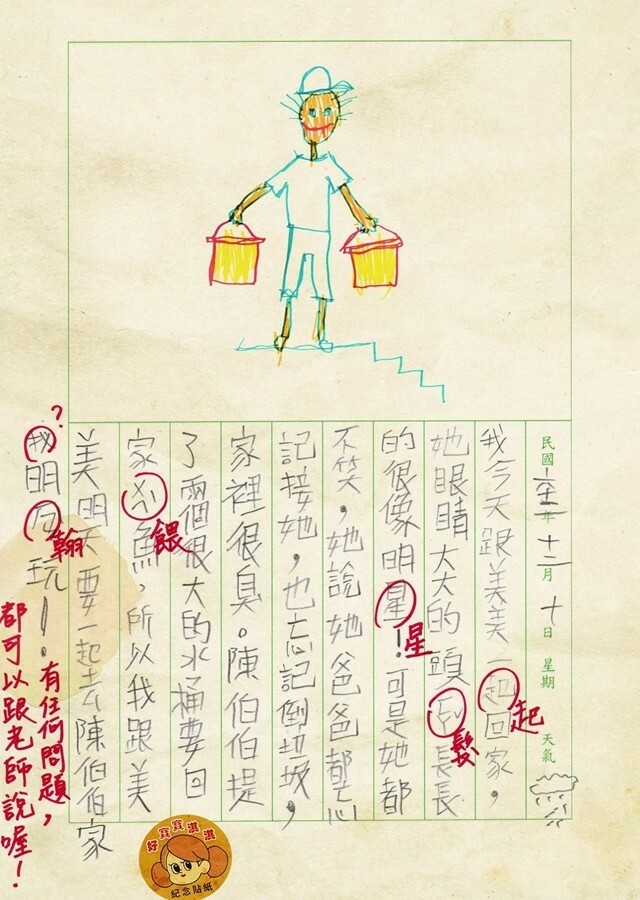 民國 年 十二 月 十 日 星期 天氣
我今天跟美美一起回家，
起
她眼睛大大的頭長長
髮
的很像明星！可是她都
星
不笑，她說她爸爸都忘
記接她，也忘記倒垃圾，
家裡很臭。陳伯伯提
了兩個很大的水桶要回
家魚，所以我跟美
餵
美明天要一起去陳伯伯家
?
明玩！。
翰
有任何問題，
都可以跟老師說喔！
好寶寶淇淇
紀念貼紙